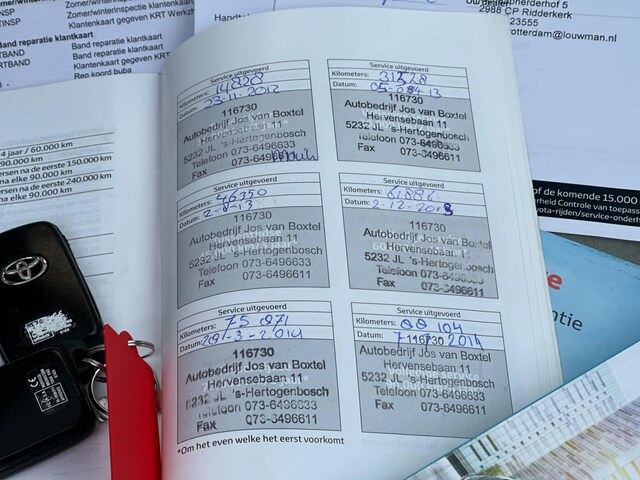 Zomer/winterinspectie klantkaart
Klantenkaart gegeven KRT Werkz
Band reparatie klantkaart
Band reparatie klantkaart
Band reparatie klantkaart
Klantenkaart gegeven KRT
Reg koord buba
herderhof 5
2988 CP Ridderkerk
23555
rotterdam@louwman.nl
4 jaar / 60.000 km
90.000 km
ersen na de eerste 150.000 km
na elke 90.000 km
ersen na de eerste 240.000 km
na elke 90.000 km
Service uitgevoerd
Kilometers: 14828
Datum: 23-11-2012
116730
Autobedrijf Jos van Boxtel
Hervensebaan 11
5232 JL 's-Hertogenbosch
Telefoon 073-6496633
Fax
Service uitgevoerd
Kilometers: 31528
Datum:
116730
Autobedrijf Jos van Boxtel
Hervensebaan 11
5232 JL 's-Hertogenbosch
Telefoon 073-6496633
Fax 073-6496611
Service uitgevoerd
Kilometers: 46350
Datum:
116730
Autobedrijf Jos van Boxtel
Hervensebaan 11
5232 JL 's-Hertogenbosch
Telefoon 073-6496633
Fax 073-6496611
Service uitgevoerd
Kilometers:
Datum: 2-12-2013
116730
Autobedrijf Jos van Boxtel
Hervensebaan 11
5232 JL 's-Hertogenbosch
Telefoon 073-6496633
Fax 073-6496611
Service uitgevoerd
Kilometers: 75 071
Datum:
116730
Autobedrijf Jos van Boxtel
Hervensebaan 11
5232 JL 's-Hertogenbosch
Telefoon 073-6496633
Fax 073-6496611
Service uitgevoerd
Kilometers:
Datum:
116730
Autobedrijf Jos van Boxtel
Hervensebaan 11
5232 JL 's-Hertogenbosch
Telefoon 073-6496633
Fax 073-6496611
*Om het even welke het eerst voorkomt
of de komende 15.000
erheid Controle van toepass
yota-rijden/service-onderh
e
antie